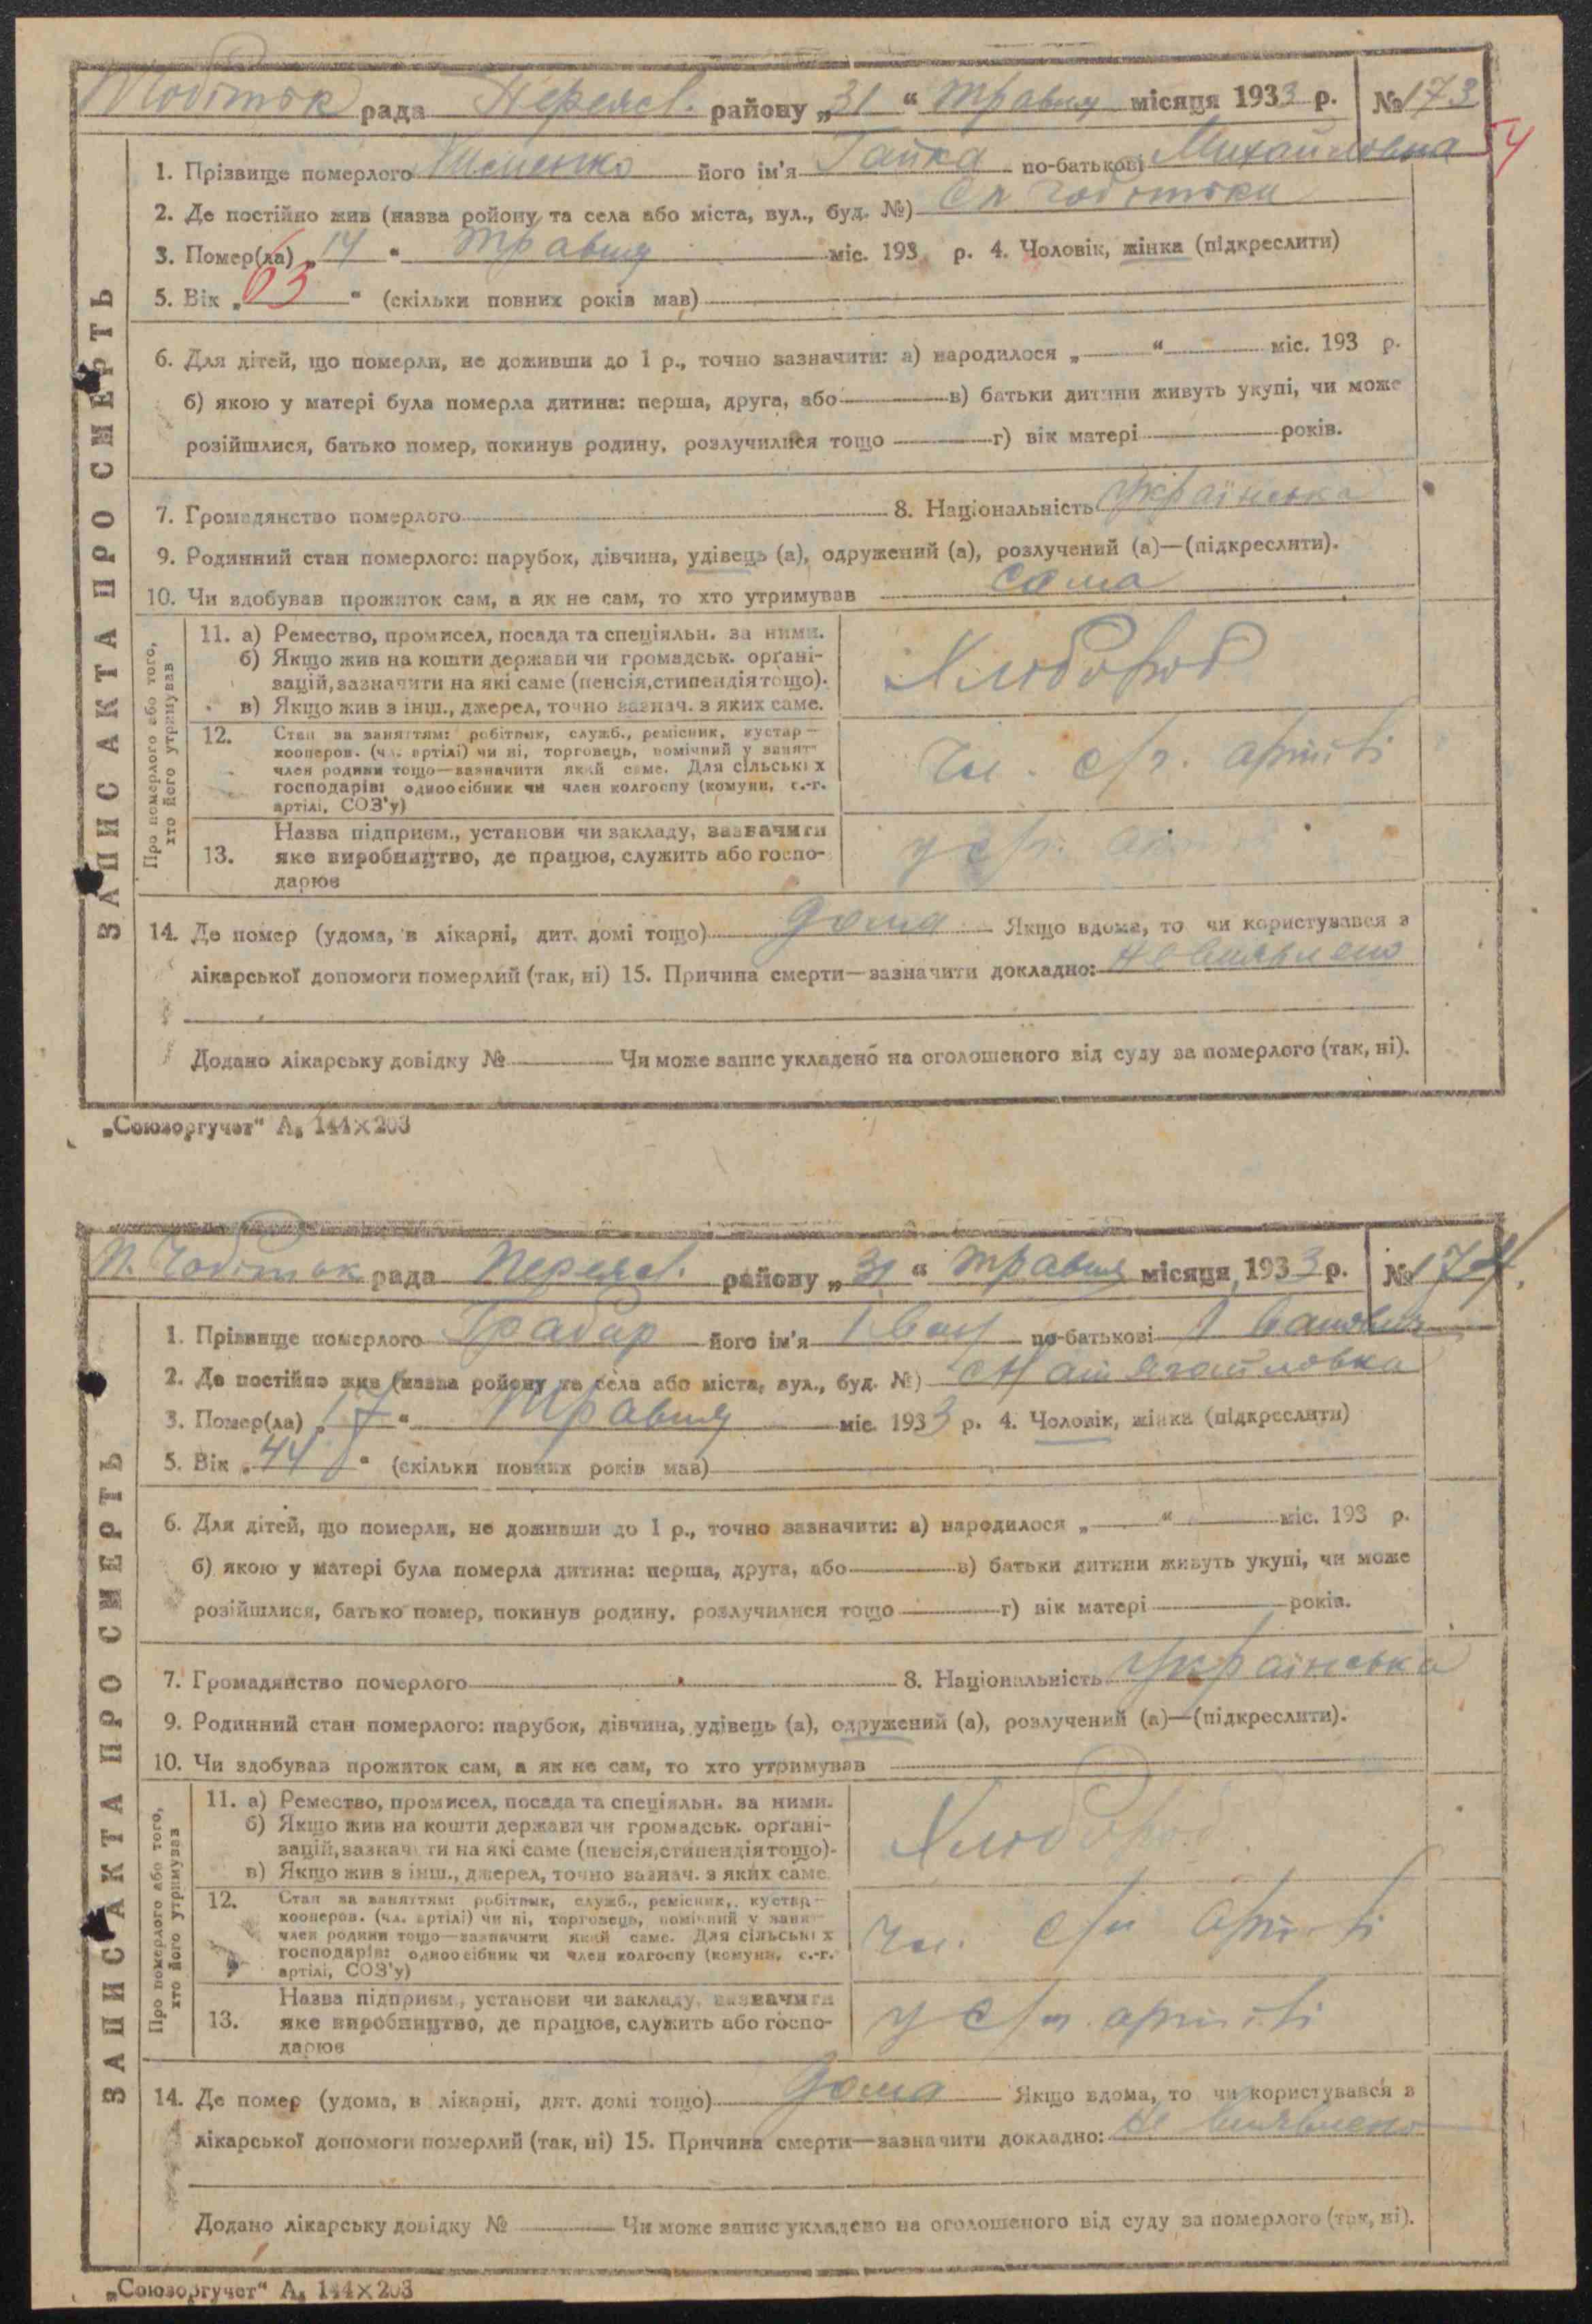 рада Переясл. району „31“ травня місяця 1933 р. № 173
54
ЗАПИС АКТА ПРО СМЕРТЬ
1. Прізвище померлого його ім'я Ганна по-батькові Михайловна
2. Де постійно жив (назва ройону та села або міста, вул., буд. №)
3. Помер(ла) „14“ травня міс. 193 р. 4. Чоловік, жінка (підкреслити)
5. Вік „63“ (скільки повних років мав)
6. Для дітей, що померли, не доживши до 1 р., точно зазначити: а) народилося „ “ міс. 193 р.
б) якою у матері була померла дитина: перша, друга, або в) батьки дитини живуть укупі, чи може
розійшлися, батько помер, покинув родину, розлучилися тощо г) вік матері років.
7. Громадянство померлого 8. Національність Українська
9. Родинний стан померлого: парубок, дівчина, удівець (а), одружений (а), розлучений (а)—(підкреслити).
10. Чи здобував прожиток сам, а як не сам, то хто утримував сама
Про померлого або того, хто його утримував
11. а) Ремество, промисел, посада та спеціяльн. за ними.
б) Якщо жив на кошти держави чи громадськ. орґані-
зацій, зазначити на які саме (пенсія, стипендія тощо).
в) Якщо жив з інш., джерел, точно зазнач. з яких саме.
Хлібороб
12. Стан за заняттям: робітник, служб., ремісник, кустар—
кооперов. (чл. артілі) чи ні, торговець, помічний у занят
член родини тощо—зазначити який саме. Для сільських
господарів: одноосібник чи член колгоспу (комуни, с.-г.
артілі, СОЗ'у)
чл. с/г. артілі
13. Назва підприєм., установи чи закладу, зазначити
яке виробництво, де працює, служить або госпо-
дарює
у с/г. артілі
14. Де помер (удома, в лікарні, дит. домі тощо) дома Якщо вдома, то чи користувався з
лікарської допомоги померлий (так, ні) 15. Причина смерти—зазначити докладно: не виявлено
Додано лікарську довідку № Чи може запис укладено на оголошеного від суду за померлого (так, ні).
„Союзоргучет“ А₅ 144×203
рада Переясл. району „31“ травня місяця 1933 р. № 174.
ЗАПИС АКТА ПРО СМЕРТЬ
1. Прізвище померлого Грабар його ім'я Іван по-батькові Іванович
2. Де постійно жив (назва ройону та села або міста, вул., буд. №)
3. Помер(ла) „17“ травня міс. 1933 р. 4. Чоловік, жінка (підкреслити)
5. Вік „44“ (скільки повних років мав)
6. Для дітей, що померли, не доживши до 1 р., точно зазначити: а) народилося „ “ міс. 193 р.
б) якою у матері була померла дитина: перша, друга, або в) батьки дитини живуть укупі, чи може
розійшлися, батько помер, покинув родину, розлучилися тощо г) вік матері років.
7. Громадянство померлого 8. Національність Українська
9. Родинний стан померлого: парубок, дівчина, удівець (а), одружений (а), розлучений (а)—(підкреслити).
10. Чи здобував прожиток сам, а як не сам, то хто утримував
Про померлого або того, хто його утримував
11. а) Ремество, промисел, посада та спеціяльн. за ними.
б) Якщо жив на кошти держави чи громадськ. орґані-
зацій, зазначити на які саме (пенсія, стипендія тощо).
в) Якщо жив з інш., джерел, точно зазнач. з яких саме.
Хлібороб
12. Стан за заняттям: робітник, служб., ремісник, кустар—
кооперов. (чл. артілі) чи ні, торговець, помічний у занят
член родини тощо—зазначити який саме. Для сільських
господарів: одноосібник чи член колгоспу (комуни, с.-г.
артілі, СОЗ'у)
чл. с/г артілі
13. Назва підприєм., установи чи закладу, зазначити
яке виробництво, де працює, служить або госпо-
дарює
у с/г. артілі
14. Де помер (удома, в лікарні, дит. домі тощо) дома Якщо вдома, то чи користувався з
лікарської допомоги померлий (так, ні) 15. Причина смерти—зазначити докладно: не виявлено
Додано лікарську довідку № Чи може запис укладено на оголошеного від суду за померлого (так, ні).
„Союзоргучет“ А₅ 144×203